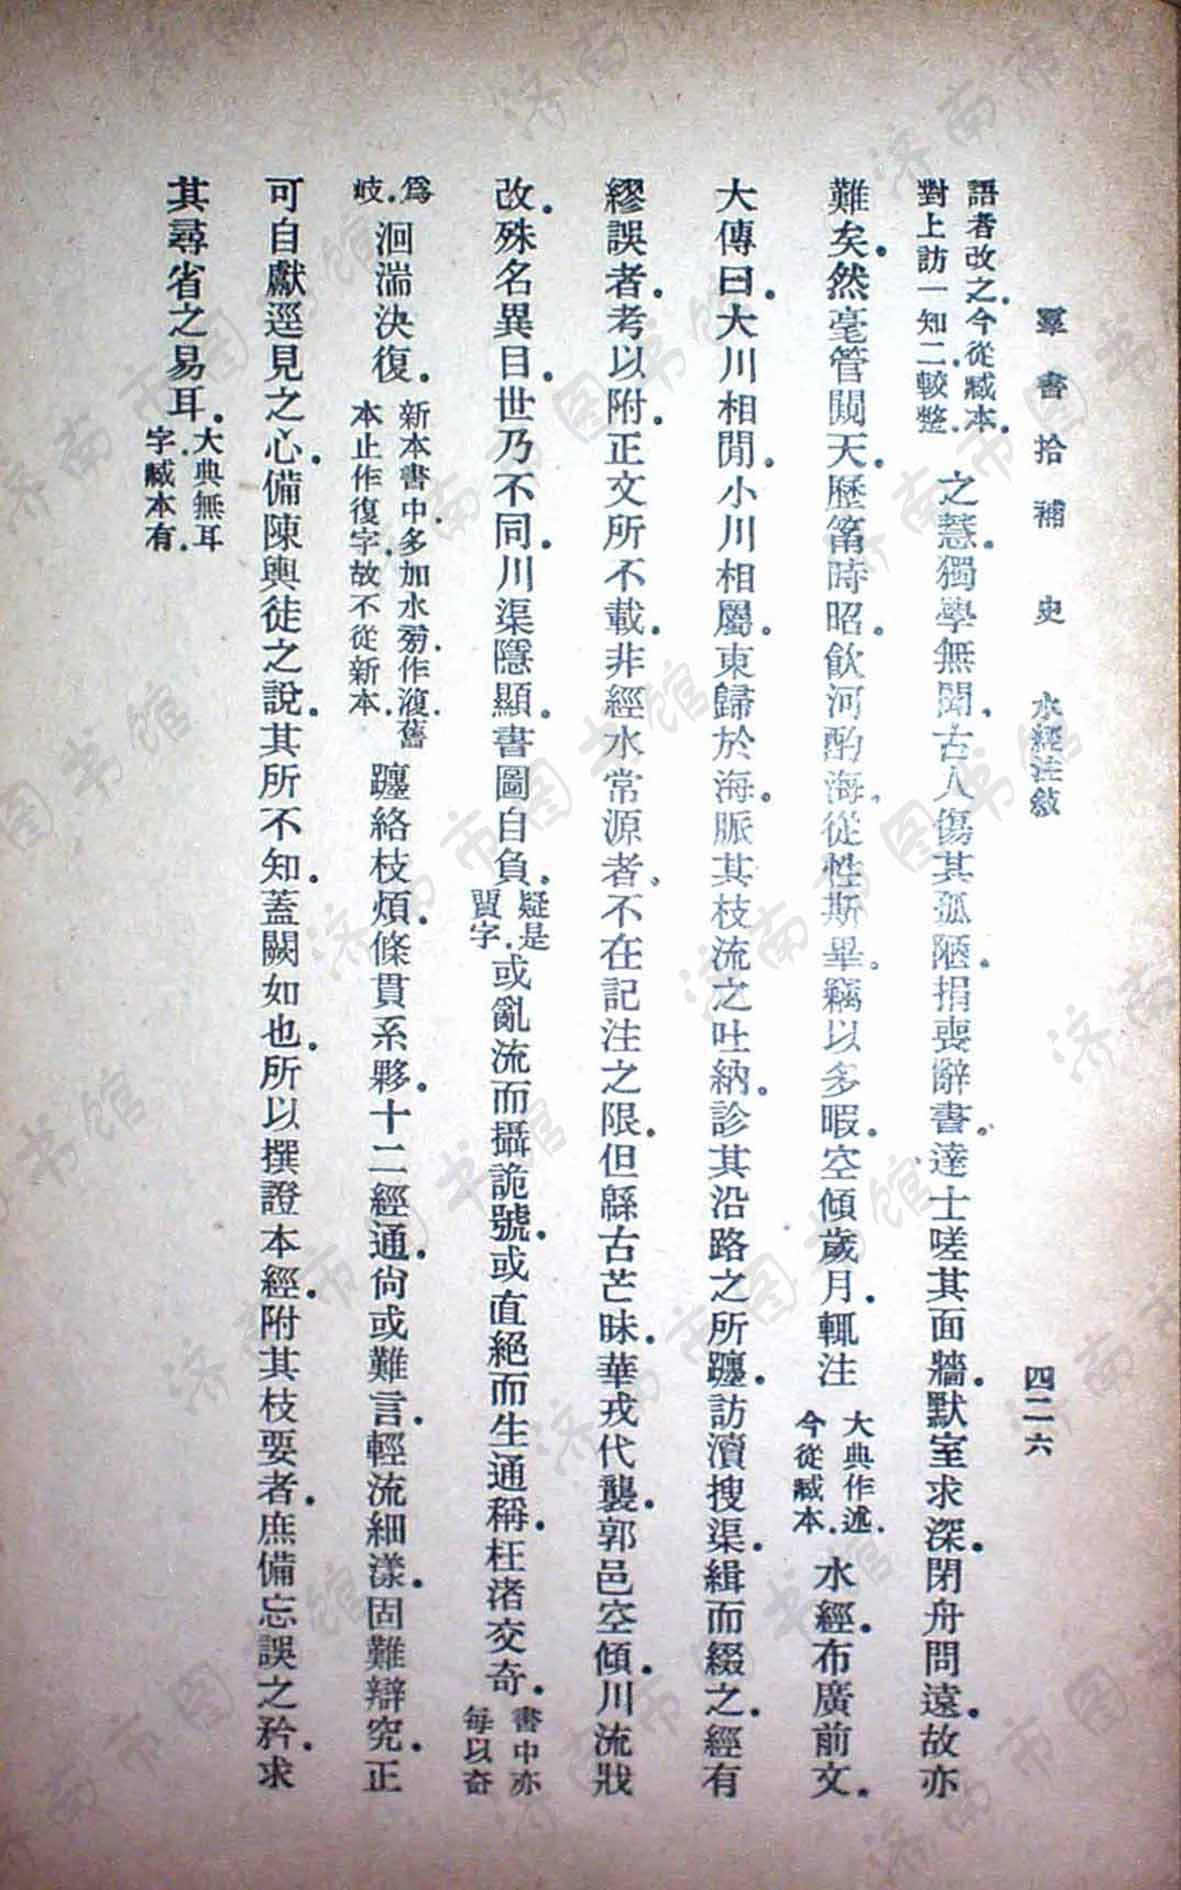 羣書拾補　史　水經注敘　四二六
語者改之。今從臧本。對上訪一知二。較整。之慧。獨學無聞。古人傷其孤陋。捐喪辭書。達士嗟其面牆。默室求深。閉舟問遠。故亦
難矣。然毫管闚天。歷筩時昭。飲河酌海。從性斯畢。竊以多暇。空傾歲月。輒注大典作述。今從臧本。水經。布廣前文。
大傳曰。大川相閒。小川相屬。東歸於海。脈其枝流之吐納。診其沿路之所躔。訪瀆搜渠。緝而綴之。經有
繆誤者。考以附。正文所不載。非經水常源者。不在記注之限。但緜古芒昧。華戎代襲。郭邑空傾。川流戕
改。殊名異目。世乃不同。川渠隱顯。書圖自負。疑是貿字。或亂流而攝詭號。或直絕而生通稱。枉渚交奇。書中亦每以奇
爲岐。洄湍決復。新本書中。多加水旁作澓。舊本止作復字。故不從新本。躔絡枝煩。條貫系夥。十二經通。尙或難言。輕流細漾。固難辯究。正
可自獻逕見之心。備陳輿徒之說。其所不知。蓋闕如也。所以撰證本經。附其枝要者。庶備忘誤之矜。求
其尋省之易耳。大典無耳字。臧本有。